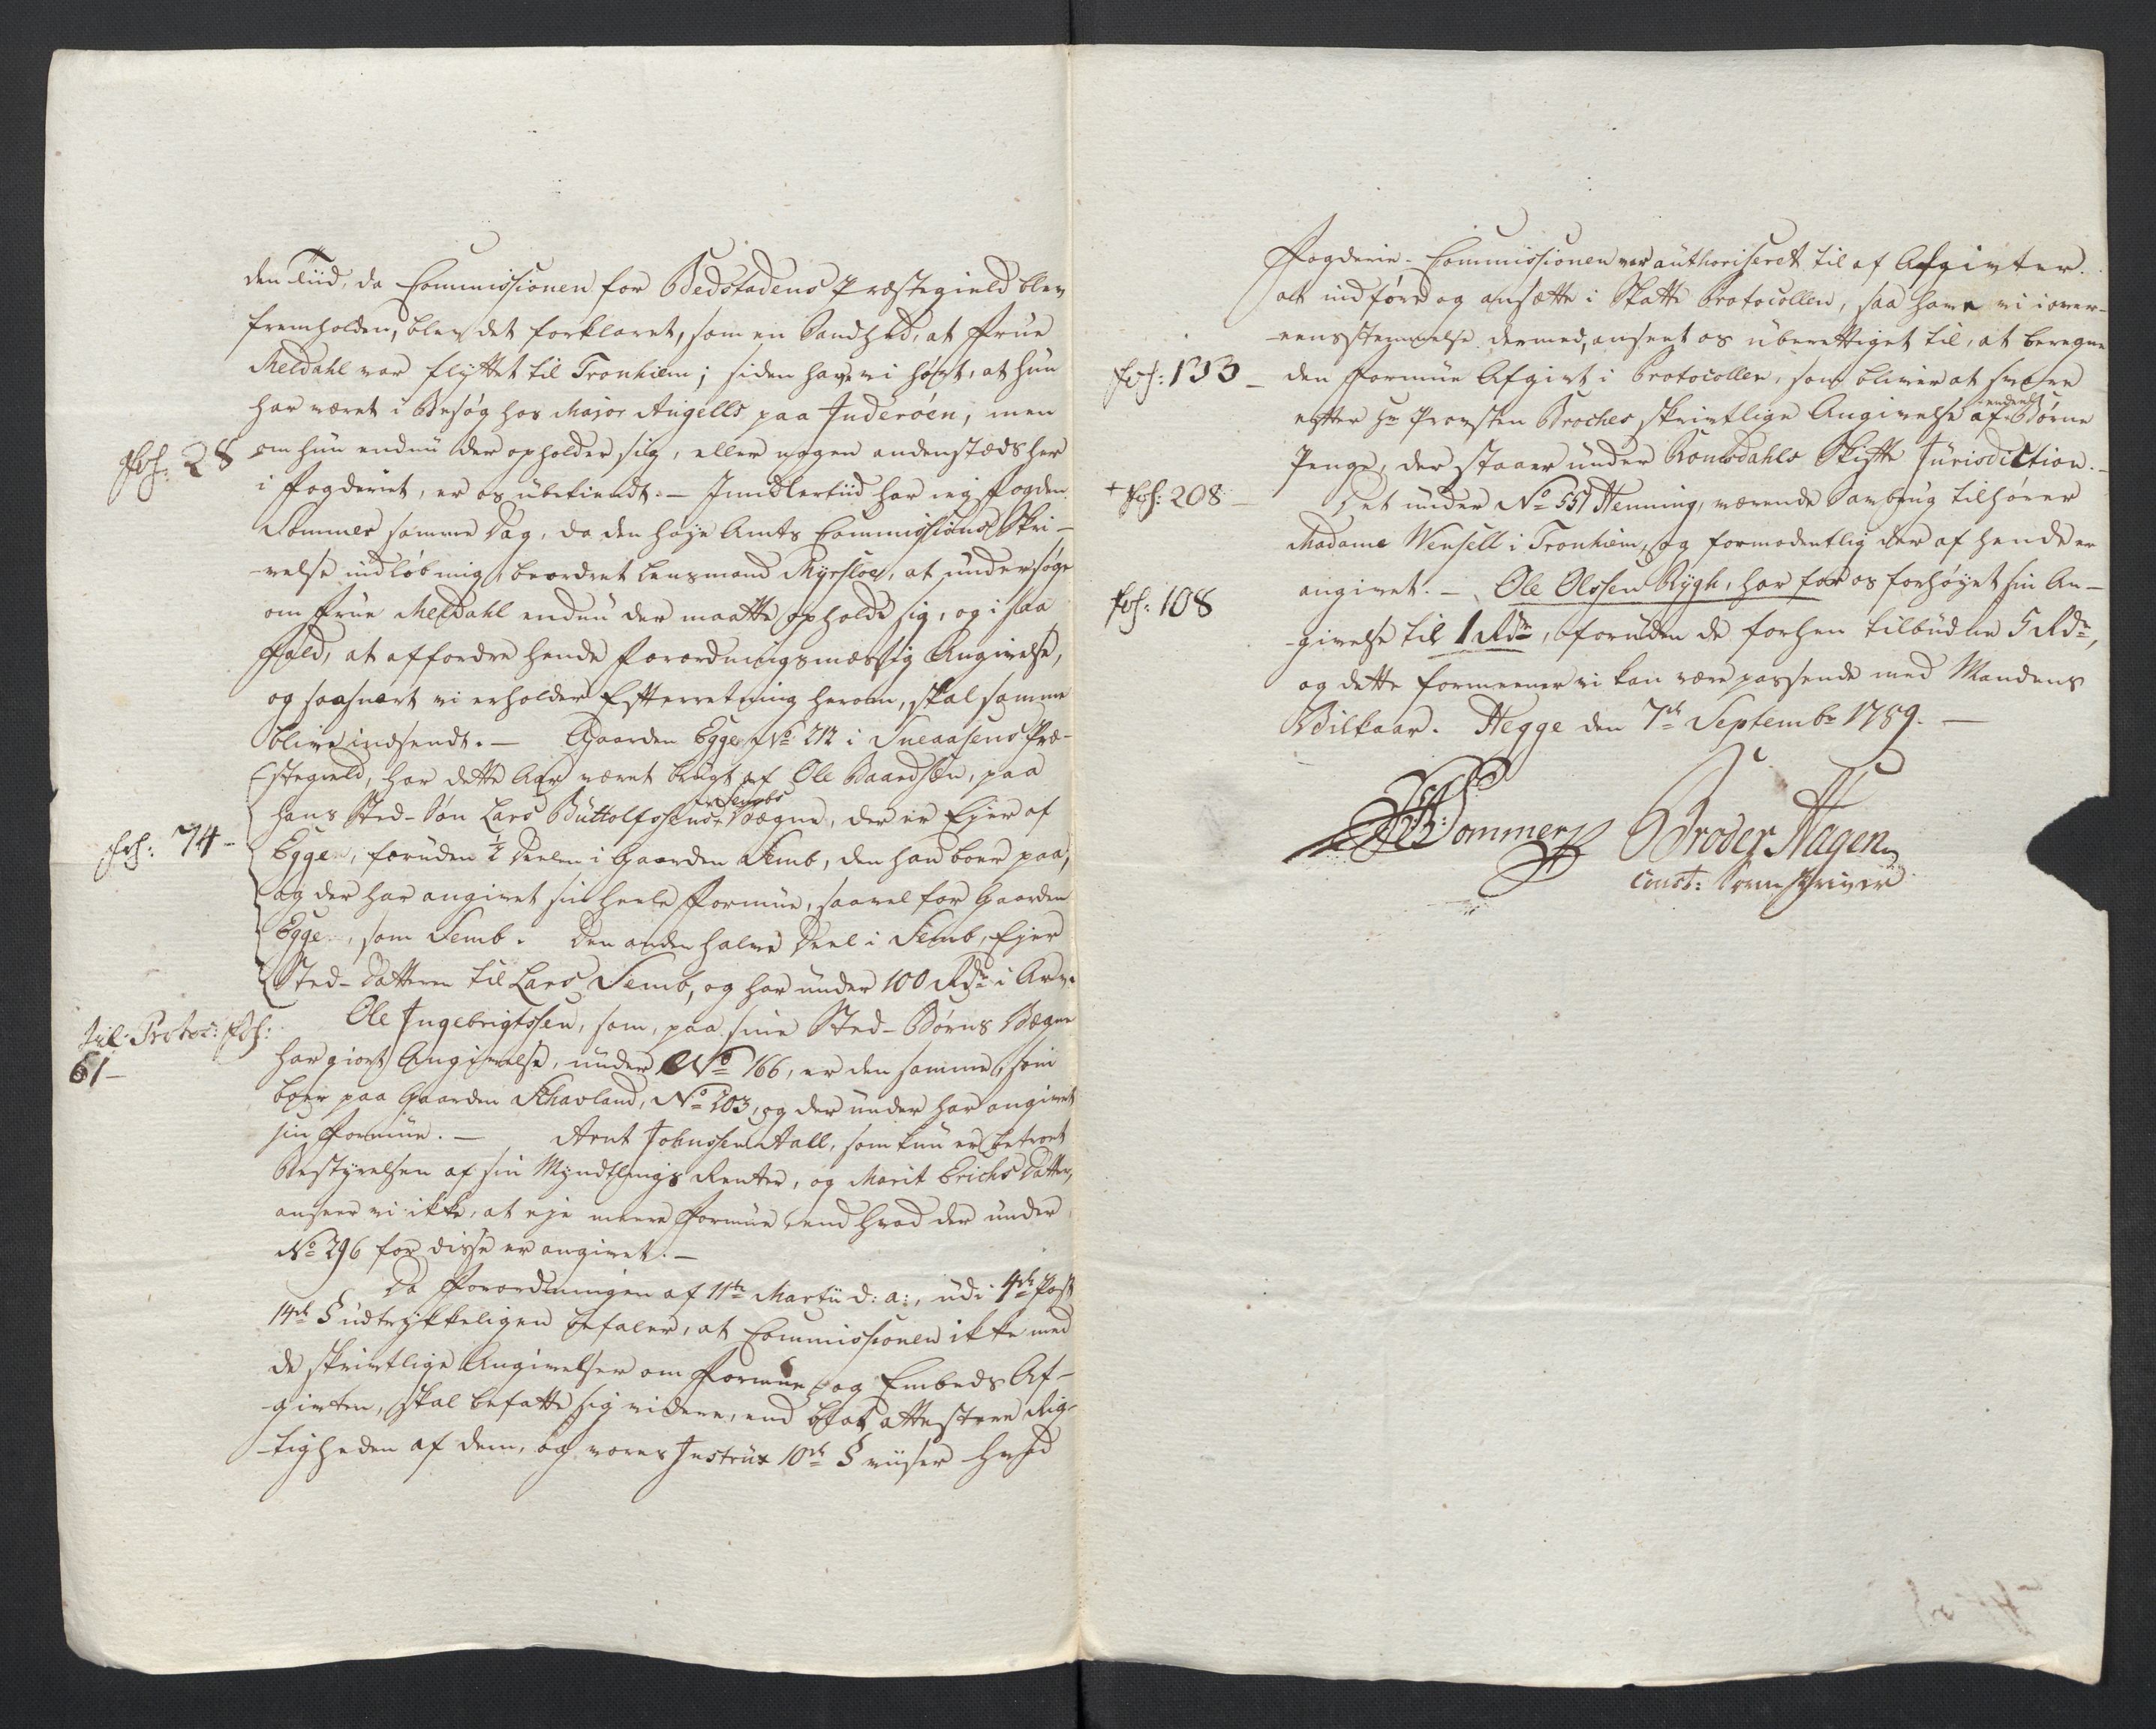 den Tiid, da Commissionen for Bedstadens Præstegield blev
fremholden, blev det forklaret, som en Sandhed, at Frue
Meldahl var flyttet til Tronhiem; siden have vi hørt, at hun
har været i Besøg hos Major Angells paa Inderöen, men
Fol: 28
om hun endnu der opholder sig, eller nogen andenstæds her
i Fogderiet, er os ubekiendt. — Imidlertiid har ieg Fogden
Sommer samme Dag, da den høje Amts Commissions Skri-
velse indløb mig, beordret Lensmand Myrsloe, at undersøge
om Frue Meldahl endnu der maatte opholde sig, og i saa
Fald, at affordre hende Forordningsmæssig Angivelse,
og saasnart vi erholder Efterretning herom, skal samme
blive indsendt. — Gaarden Egge No 212 i Sneaasens Præ-
stegield, har dette Aar været brugt af Ole Baardsen, paa
hans Sted-Søn Lars Buttolfssens Sembs Vægne, der er Ejer af
Fol: 74 -
Eggen, foruden ½ Deelen i Gaarden Semb, den han boer paa,
og der har angivet sin heele Formue, saavel for Gaarden
Eggen, som Semb. Den anden halve Deel i Semb, Ejer
Sted-Datteren til Lars Semb, og har under 100 Rdr i Arv.
Jul: Protoc: Fol:
61 -
Ole Ingebrigtssen, som, paa sine Sted-Børns Vægne
har giort Angivelse, under No 166, er den samme, som
boer paa Gaarden Schavland, No 203, og der under har angivet
sin Formue. — Arnt Johnssen Aall, som kun er betroet
Bestyrelsen af sin Myndtlings Renter, og Marit Erichs Datter,
anseer vi ikke, at eje meere Formue, end hvad der under
No 296 for disse er angivet. —
Da Forordningen af 11te Martii d: a:, udi 4de Post
14de § udtrykkeligen befaler, at Commissionen ikke med
de skrivtlige Angivelser om Formue og Embeds Af-
givten, skal befatte sig videre, end blot attestere Rig-
tigheden af dem, og vores Instrux 10de § viiser hvad
Fogderie-Commissionen var authoriseret til af Afgivter
at indføre og ansætte i Skatte Protocollen, saa have vi i over-
eensstemmelse dermed, anseet os uberettiget til, at beregne
Fol: 133 -
den Formue Afgivt i Protocollen, som bliver at svare
efter Hr Provsten Broches skrivtlige Angivelse af Børne
Penge, der staaer under Romsdahls Skifte Jurisdiction. -
+ Fol: 208 -
Det under No 551 Henning, værende Saugbrug tilhører
Madame Wensell i Tronhiem, og formodentlig der af hende er
Fol: 108
angivet. — Ole Olssen Rygh, har for os forhøyet sin An-
givelse til 1 Rdr, foruden de forhen tilbudne 5 Rdr,
og dette formeener vi kan være passende med Mandens
Vilkaar. Hegge den 7de Septembr 1789. —
Sommer Broder Hagen
const: Sorenskriver